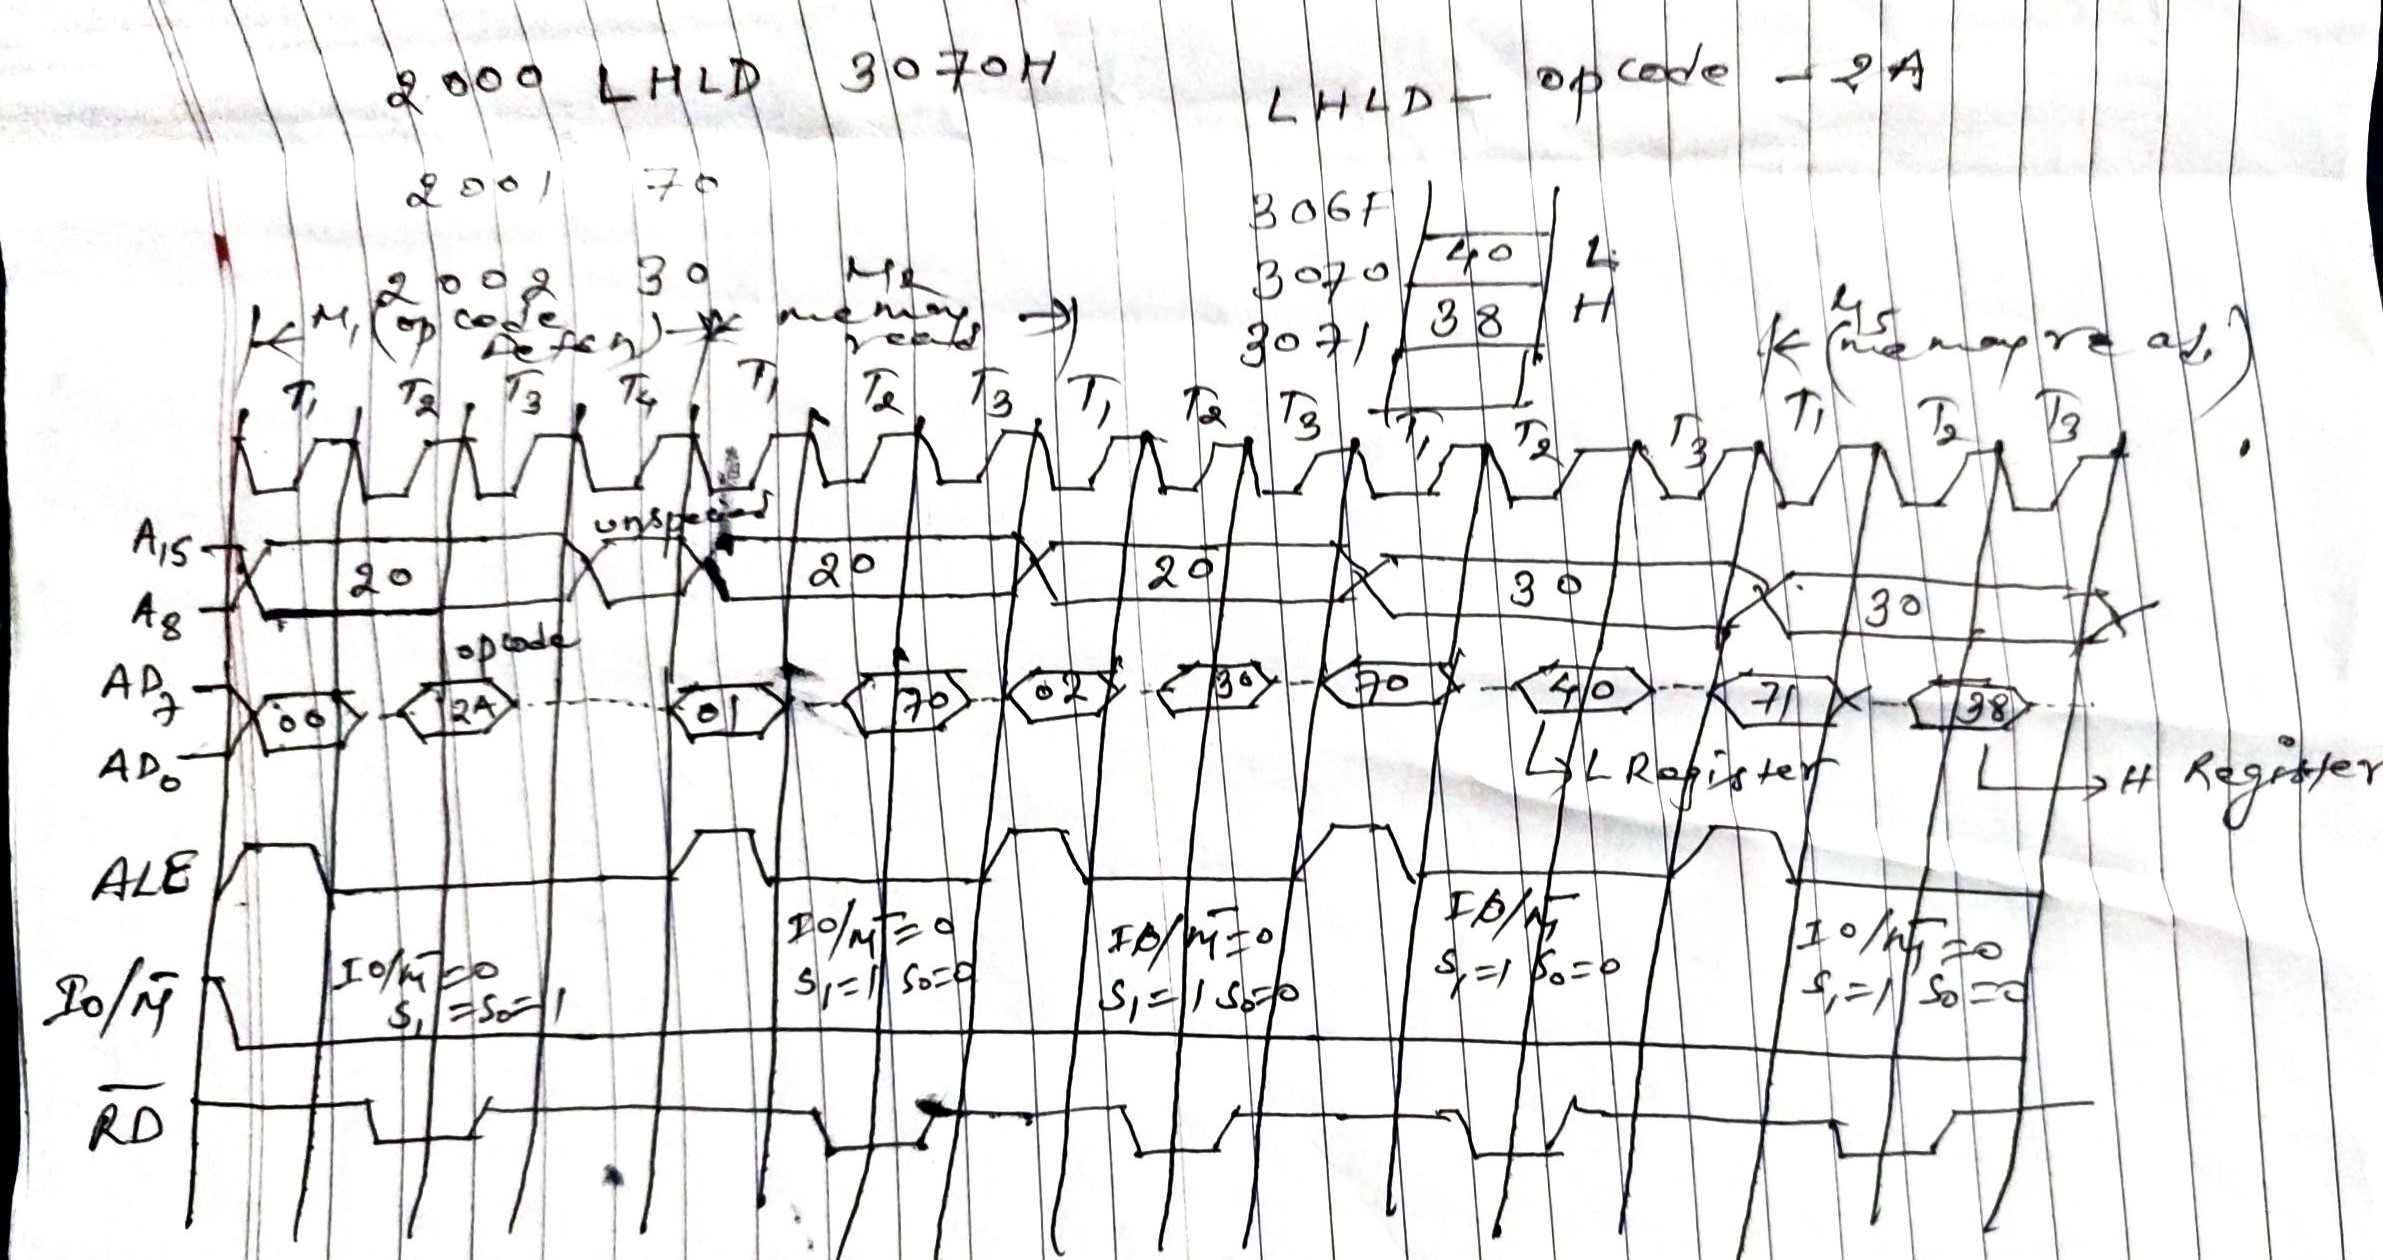 2000 LHLD 3070H
LHLD - opcode - 2A
2001 70
2002 30
306F
3070 40 L
3071 38 H
M1 (opcode
) M2
memory
read
M5
(memory read)
T1 T2 T3 T4 T1 T2 T3 T1 T2 T3 T1 T2 T3 T1 T2 T3
A15
A8
20 20 20 30 30
opcode
AD7
AD0
00 2A 01 70 02 30 70 40 71 38
L Register
H Register
ALE
IO/M̅
IO/M̅=0
S1=S0=1
IO/M̅=0
S1=1 S0=0
IO/M̅=0
S1=1 S0=0
IO/M̅
S1=1 S0=0
IO/M̅=0
S1=1 S0=0
R̅D̅